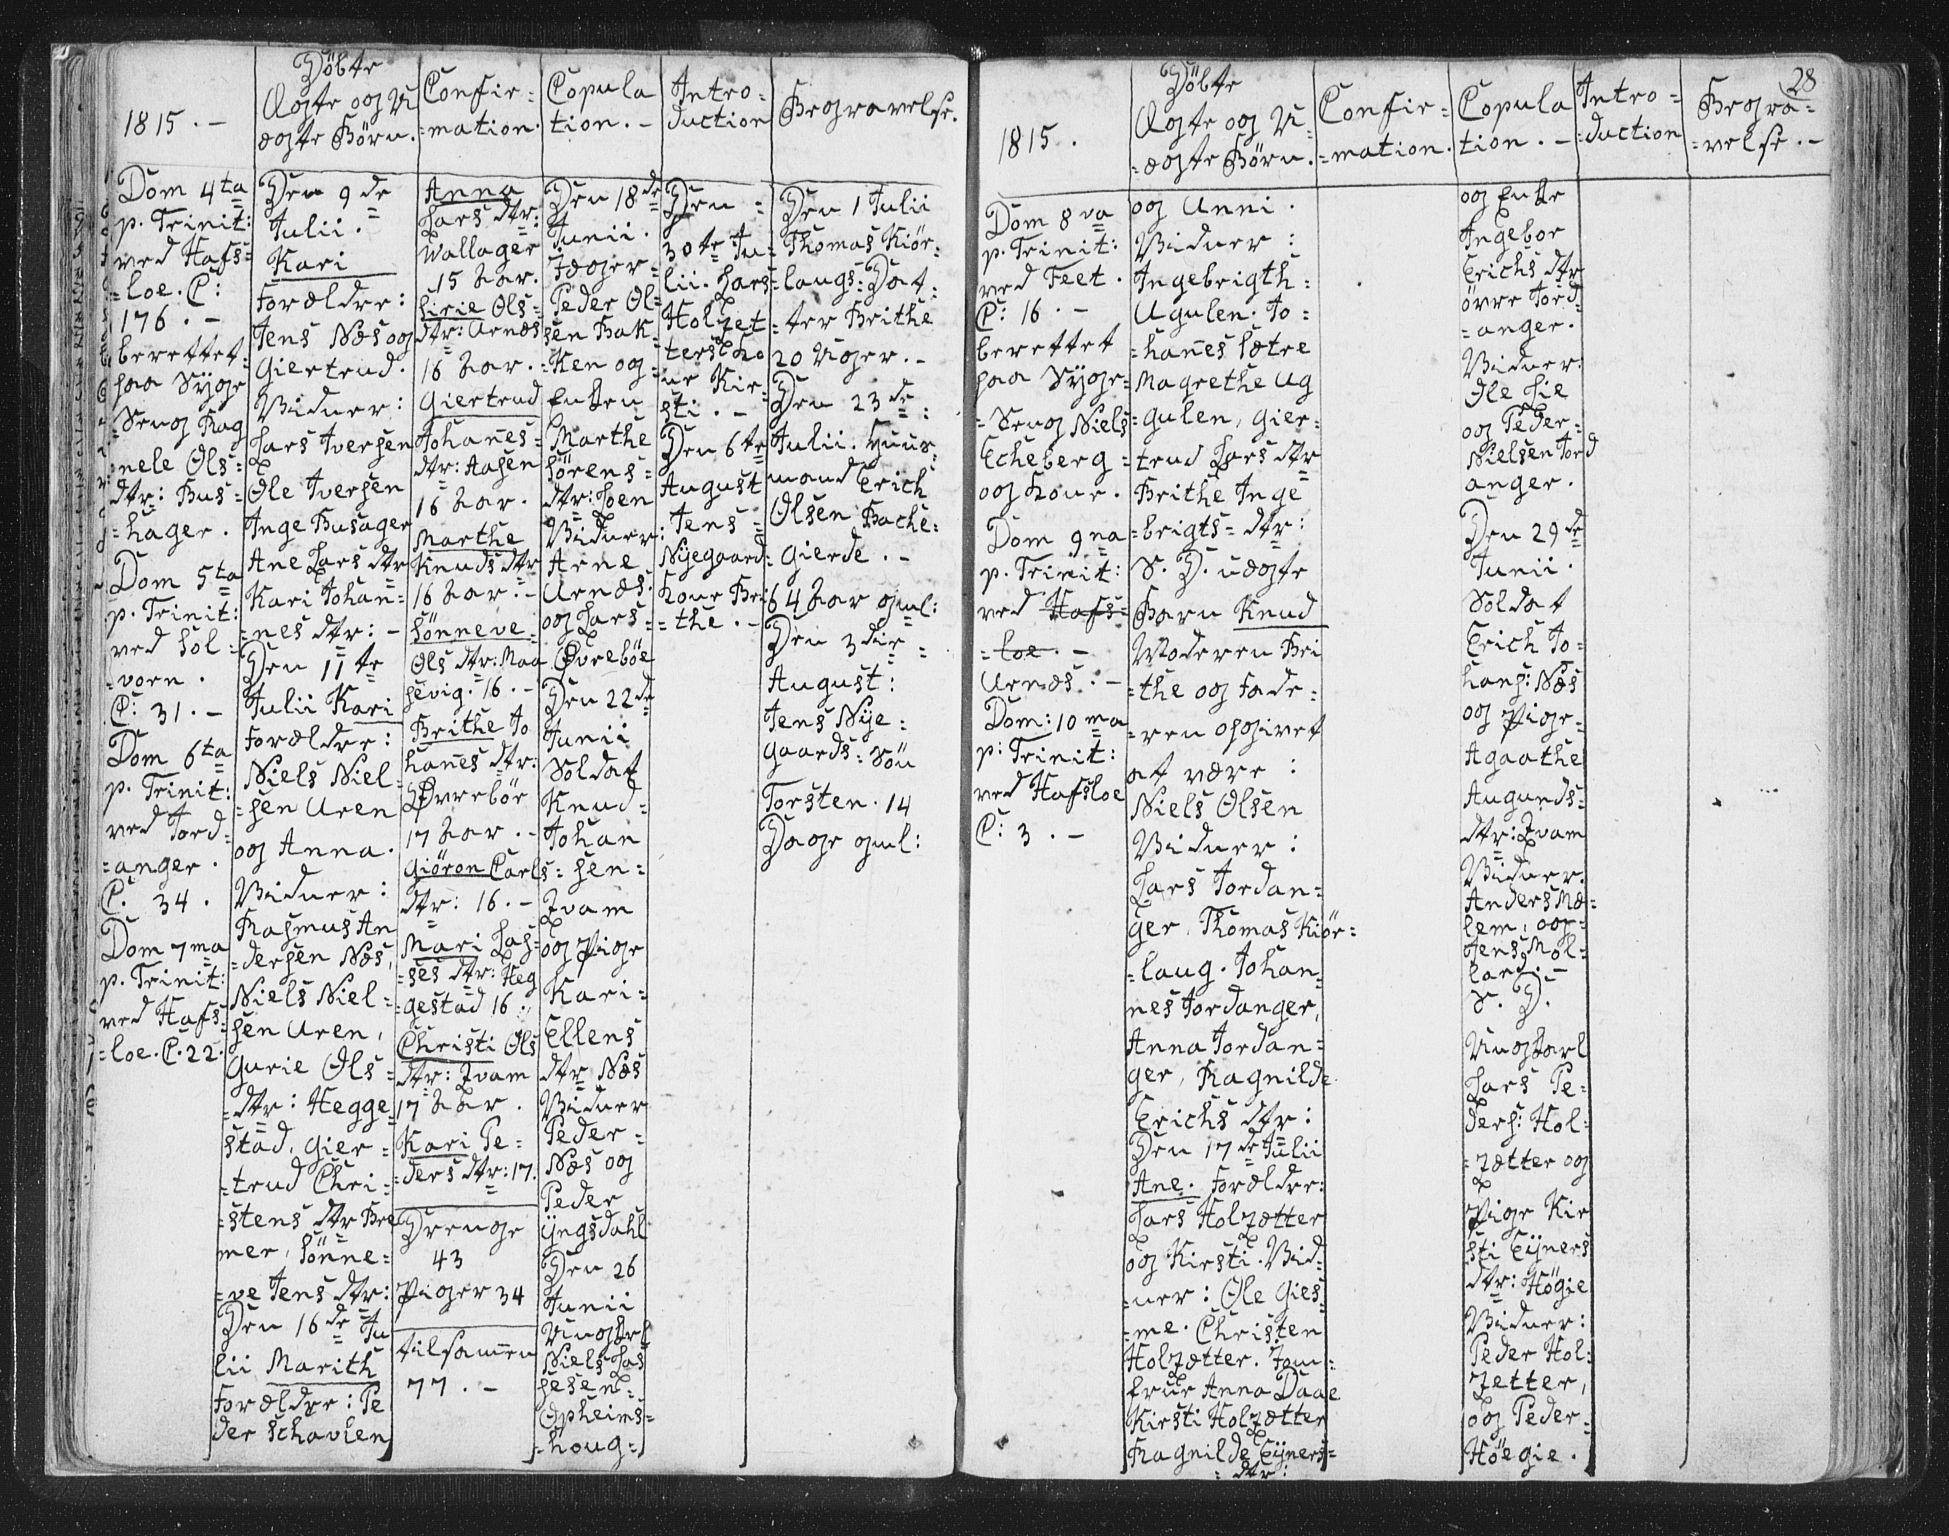 1815. -
Dom 4ta
p. Trinit:
ved Hafs=
=loe. C:
176. -
berettet
paa Syge
=Seng Rag
nele Ols=
dtr: Bus=
=hager.
Dom 5ta
p. Trinit:
ved Sol=
=vorn.
C: 31. -
Dom 6ta
p. Trinit:
ved Jord=
=anger.
C. 34.
Dom 7ma
p. Trinit:
ved Hafs=
=loe. C. 22.
Döbte
Ægte og U
ægte Börn.
Den 9de
Julii.
Kari
Forældre:
Jens Næs og
Giertrud.
Vidner:
Lars Iversen
Ole Iversen
Inge Busager
Ane Lars dtr
Kari Johan=
=nes dtr: -
Den 11te
Julii Kari
Forældre:
Niels Niel=
=sen Uren
og Anna.
Vidner:
Rasmus An
=dersen Næs,
Niels Niel=
sen Uren,
Gurie Ols=
=dtr: Hegge
stad, Gier=
=trud Chri=
=stens dtr Bre
mer, Sönne=
=ve Jens dtr:
Den 16de Ju
lii Marith
Forældre: Pe
der Schavlen
Confir=
=mation.
Anna
Lars dtr:
Wallager
15 Aar.
Sirie Ols=
dtr: Arnæs
16 Aar.
Giertrud
Johañes=
dtr: Aasen
16 Aar.
Marthe
Knuds dtr
16 Aar. -
Sönneve
Ols dtr: Maa
sevig. 16. -
Brithe Jo
hañes dtr:
Øvrebör
17 Aar. -
Giöron Carls=
dtr: 16. -
Mari Las=
=ses dtr: Heg
gestad 16.
Christi Ols
dtr: Qvam
17 Aar.
Kari Pe=
ders dtr: 17.
Drenge
43
Piger 34
tilsamen
77. -
Copula
tion. -
Den 18de
Junii.
Jæger=
Peder Ol=
sen Bak=
=ken og
Enken
Marthe
Sörens=
dtr: Loen
Vidner:
Arne
Urnæs.
og Lars=
Øvreböe
Den 22de
Junii
Soldat
Knud=
Johan
=sen=
Qvam
og Pige
Kari=
Ellens
dtr Næs
Vidner
Peder=
Næs og
Peder
Yngsdahl
Den 26
Junii
Ungkarl
Niels Las
sesen=
Opheims=
=houg=
Intro=
duction
Den =
30te Ju=
lii. Lars
Holzet
ters Ko
ne Kir=
sti. -
Den 6te
August
Jens=
Nyegaard=
Kone Bri
=the. -
Begravelse.
Den 1 Julii
Thomas Kiör=
=laugs: Dat=
=ter Brithe
20 Uger. -
Den 23de
Julii. Huus=
mand Erich
Olsen Bache=
gierde. -
64 Aar gml:
Den 3die =
August:
Jens Nye=
gaards: Sön
Torsten. 14
Dage gml:
28
1815.
Dom 8va
p. Trinit:
ved Feet.
C: 16. -
berettet
paa Syge=
=Seng Niels
Echeberg=
og Kone.
Dom 9na
p. Trinit:
ved Hafs=
=loe. -
Urnæs. -
Dom: 10ma
p: Trinit:
ved Hafsloe
C: 3. -
Döbte
Ægte og U=
=ægte Börn.
og Anni.
Vidner:
Ingebrigth=
Ugulen. Jo=
=hañes Sætre
Magrethe Ug
=gulen, Gier=
trud Lars dtr
Brithe Inge
=brigts= dtr:
S. D. uægte
Barn Knud
Moderen Bri
=the og Fade=
=ren opgivet
at være:
Niels Olsen
Vidner:
Lars Jordan=
ger, Thomas Kiör=
=laug. Johan
nes Jordanger,
Anna Jordan=
ger, Ragnilde
Erichs dtr:
Den 17de Julii
Ane. Forældre:
Lars Holzætter
og Kirsti. Vid=
=ner: Ole Gies=
=me. Christen
Holzætter. Jom=
frue Anna Daae
Kirsti Holzætter
Ragnilde Eyners=
=dtr:
Confir=
=mation.
Copula
tion. -
og Enke
Ingebor
Erichs dtr
övre Jord
=anger.
Vidner:
Ole Lie
og Peder=
Nielsen Jord
anger.
Den 29de
Junii.
Soldat
Erich Jo=
hans: Næs
og Pige=
Agaathe
Augunds=
dtr: Qvam
Vidner.
Anders Mæ=
lem, og=
Jens Mol=
lard. -
S. D.
Ungkarl
Lars Pe=
ders: Hol=
=zætter og
Pige Kir
sti Eyners
dtr: Högie
Vidner:
Peder Hol=
zetter,
og Peder=
Höegie.
Intro=
=duction
Begra=
=velse. -